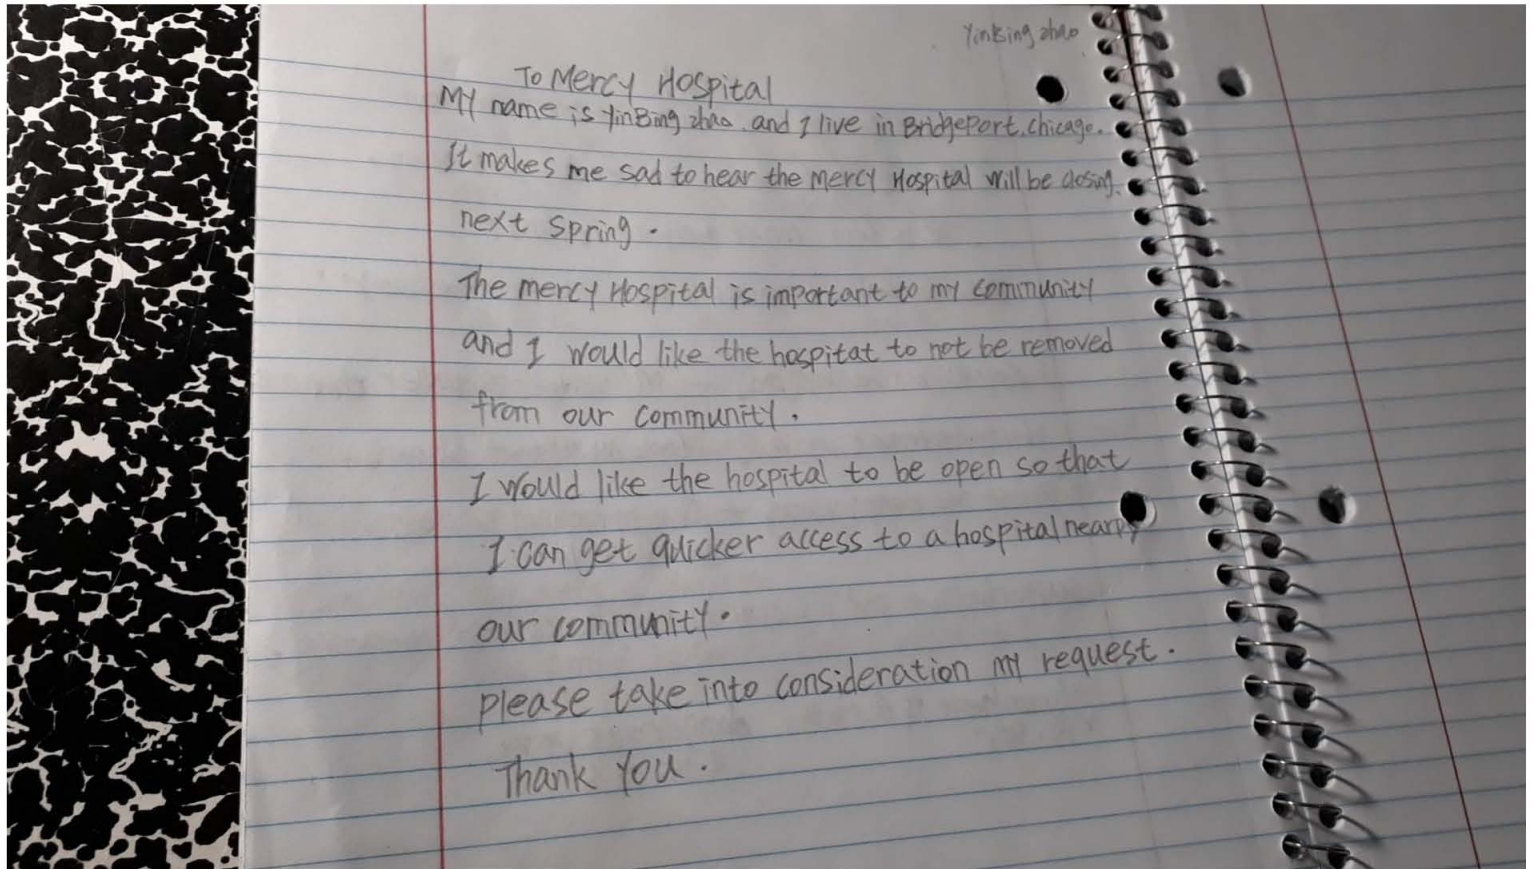 YinBing zhao
To Mercy Hospital
My name is YinBing zhao. and I live in Bridgeport. chicago.
It makes me sad to hear the Mercy Hospital will be closing.
next spring.
The mercy Hospital is important to my community
and I would like the hospitat to not be removed
from our community.
I would like the hospital to be open so that
I can get quicker access to a hospital nearby
our community.
please take into consideration my request.
Thank you.